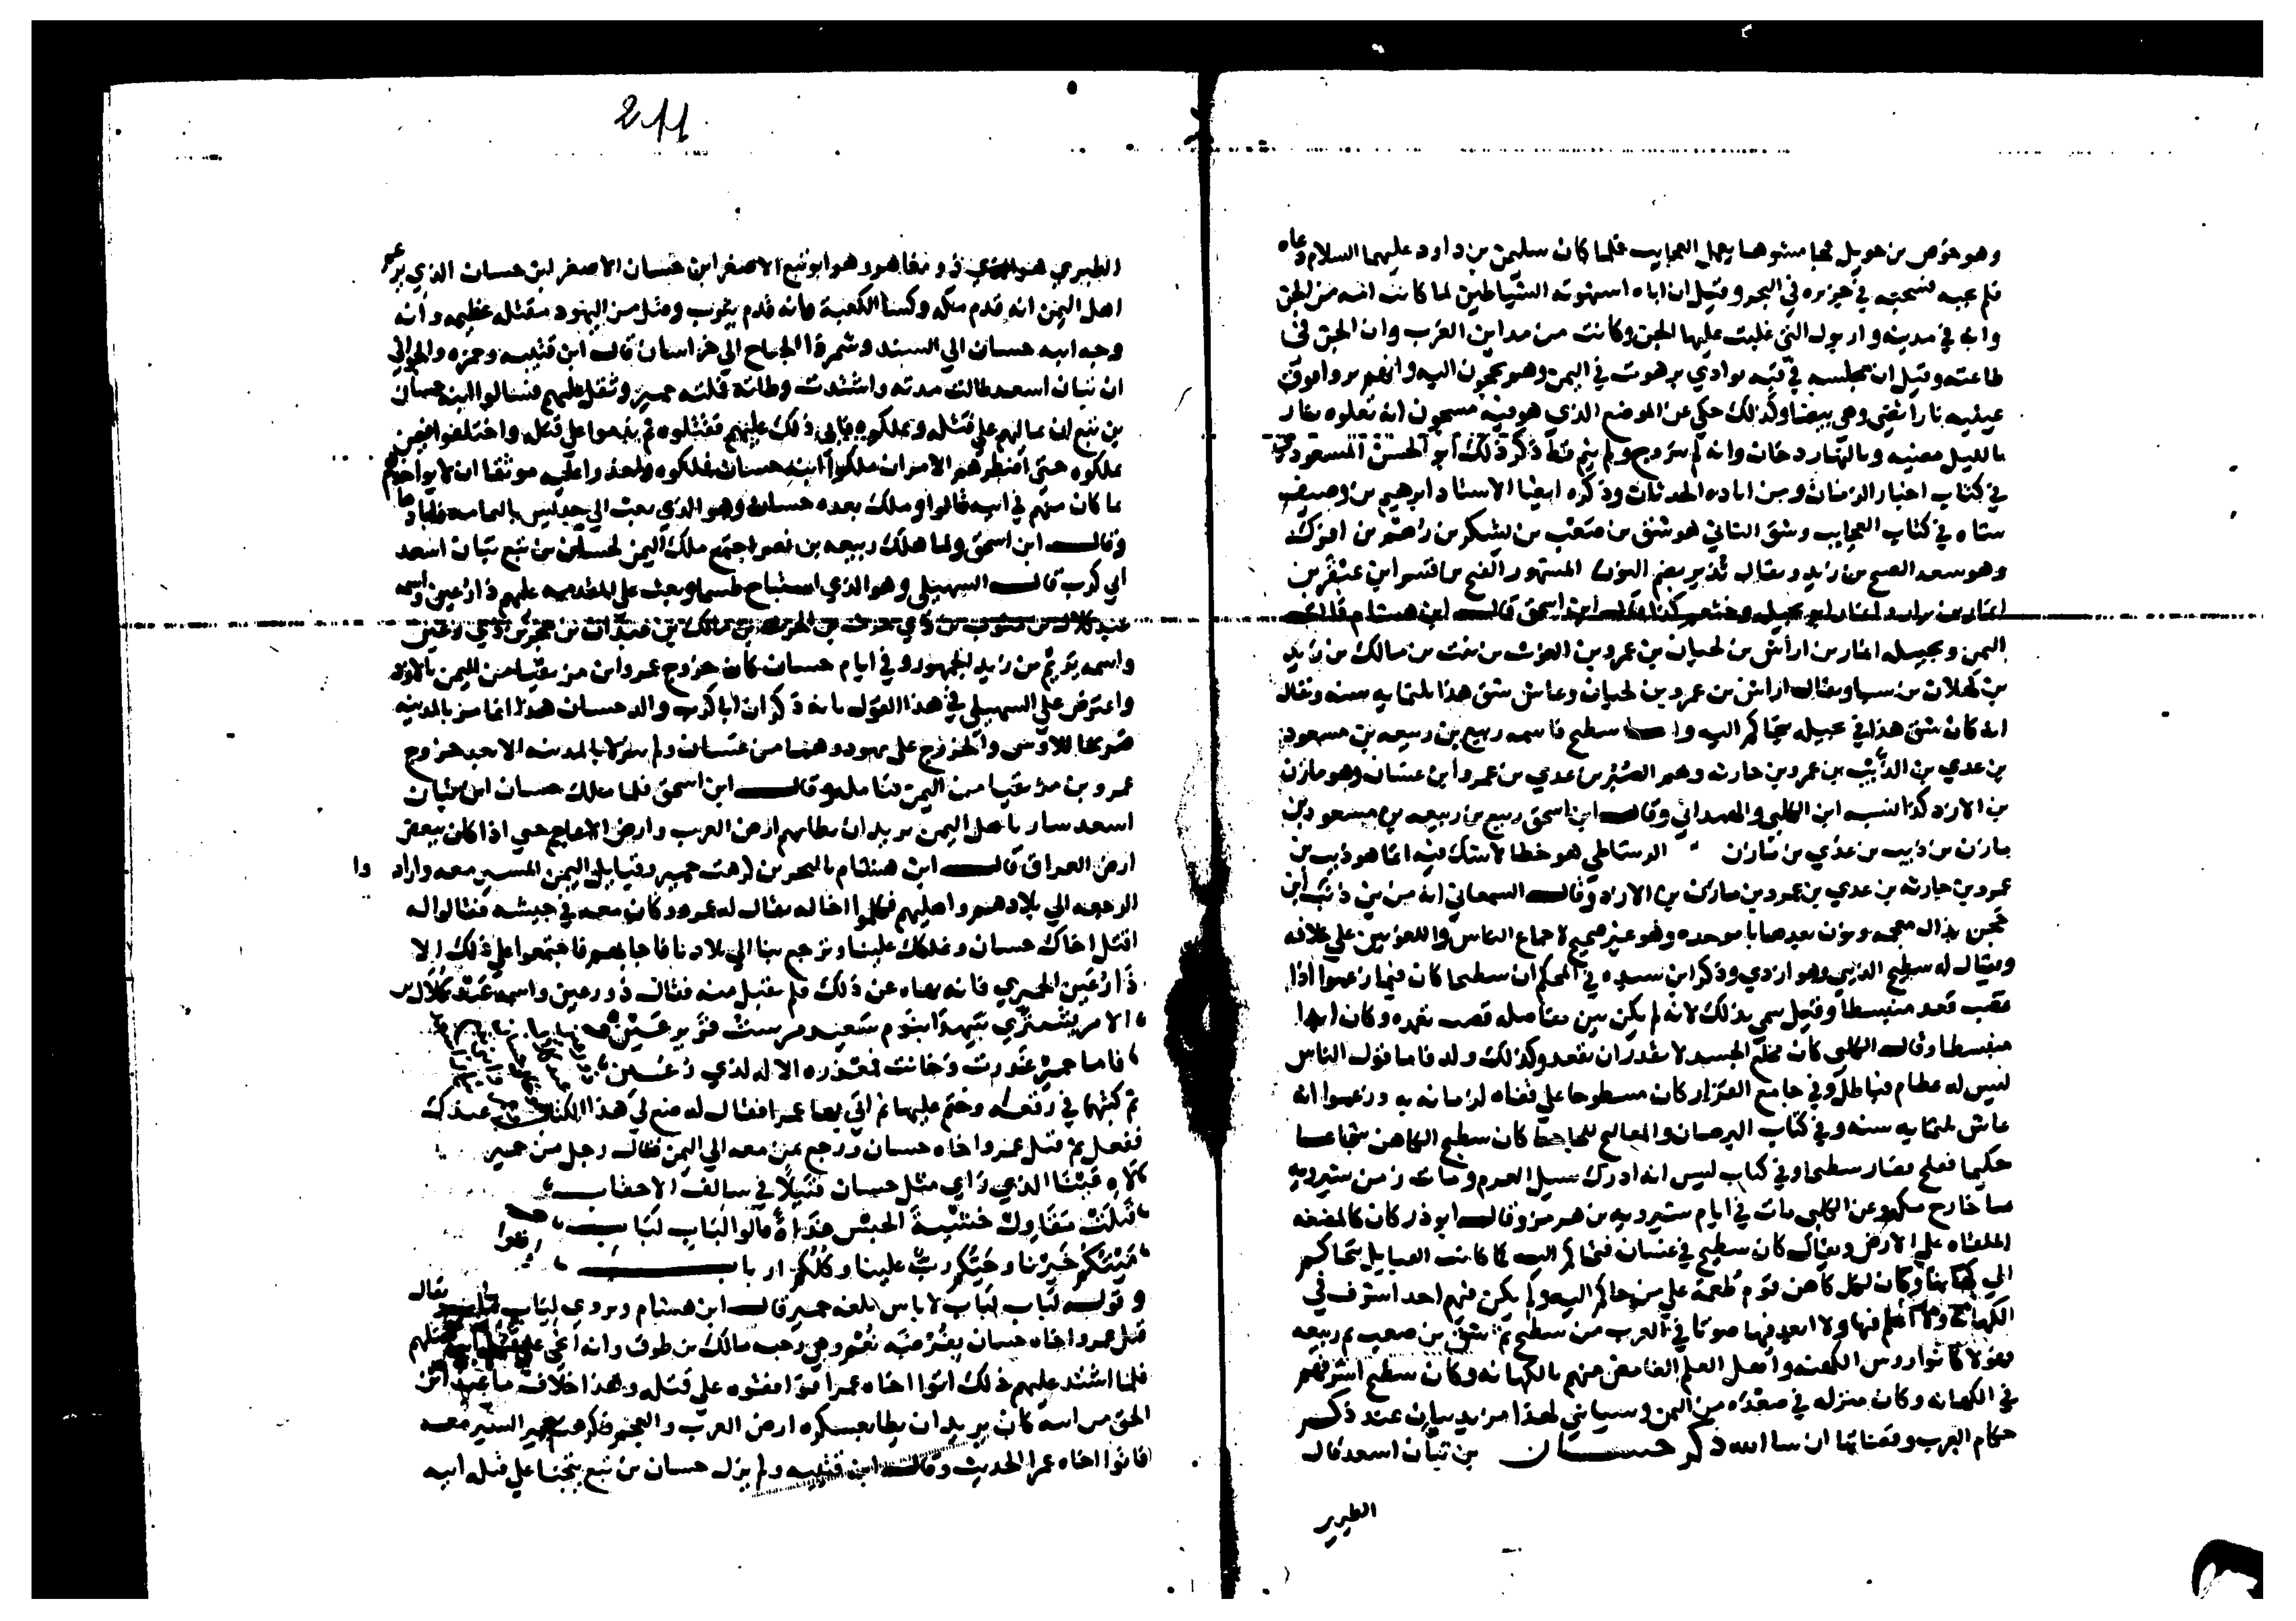 وهو خوص بن هويل مما مشوها يعمل العجايب فلما كان سليمن بن داود عليهما السلام دعاه
فلم يجبه فسجنه في جزيره في البحر وقيل ان اباه استهوته الشياطين لما كانت امه من الجن
وانه في مدينه وار بول التي غلبت عليها الجن وكانت من مداين العرب وان الجن في
طاعته وقيل ان مجلسه في قبه بوادي برهوت في اليمن وهو يحجون اليه وانهم يروا فوق
عينيه نارا تضي وهي بيضا وكذلك حكي عن الموضع الذي هو فيه مسجون انه تعلوه نار
بالليل مضيه وبالنهار دخان وانه لم يتزوج ولم ينم قط ذكر ذلك ابو الحسن المسعودي
في كتاب اخبار الزمان ومن اباده الحدثان وذكره ايضا الاستاد ابرهيم بن وصيف
شاه في كتاب العجايب وشق الثاني هو شق بن صعب بن يشكر بن رهم بن افرك
وهو سعد الصبح بن زيد ويقال نذير بضم النون المشهور الفتح بن قسر ابن عبقر بن
انمار بن نزار وانمار ابو بجيله وخثعم كذا قال ابن اسحق قال ابن هشام قالت
اليمن وبجيله انمار بن اراش بن لحيان بن عمرو بن الغوث بن نبت بن مالك بن زيد
بن كهلان بن سبا ويقال اراش بن عمرو بن لحيان وعاش شق هذا ثلثمايه سنه ويقال
انه كان شق هذا في بجيله يتحاكم اليه واما سطيح فاسمه ربيع بن ربيعه بن مسعود
بن عدي بن الذيب بن عمرو بن حارثه وهم العنبر بن عدي بن عمرو ابن غسان وهو مازن
بن الازد كذا نسبه ابن الكلبي والهمداني وقال ابن اسحق ربيع بن ربيعه بن مسعود بن
مازن بن ذيب بن عدي بن مازن الرشاطي هو خطا لا شك فيه انما هو ذيب بن
عمرو بن حارثه بن عدي بن عمرو بن مازن بن الازد وقال السمعاني انه من بني ذنب ابن
حجن بذال معجمه ونون بعدها با موحده وهو غير صحيح لاجماع الناس واللغويين علي خلافه
ويقال له سطيح الذيبي وهو ازدي وذكر ابن سيده في المحكم ان سطيحا كان فيما زعموا اذا
غضب قعد منبسطا وقيل سمي بذلك لانه لم يكن بين مفاصله قصب تعمده وكان ابدا
منبسطا وقال الكلبي كان مخلع الجسد لا يقدر ان يقعد وكذلك ولد فاما قول الناس
ليس له عظام فباطل وفي جامع القزاز كان مسطوحا علي قفاه لزمانه به وزعموا انه
عاش ثلثمايه سنه وفي كتاب البرصان والمفاليج للجاحظ كان سطيح الكاهن شجاعا
حكيما ففلج فصار سطحا وفي كتاب ليس انه ادرك سيل العرم ومات زمن شيرويه
عن الكلبي مات في ايام شيرويه بن هرمز وقال ابو ذر كان كالمضغه
الملقاه علي الارض ويقال كان سطيح في غسان فتحاكم اليه كما كانت القبايل تتحاكم
الي كهانها وكان لكل كاهن قوم طعمة علي من حاكم اليه ولم يكن فيهم احد اشرف في
الكهانه ولا اعلم فيها ولا ابعد فيها صوتا في العرب من سطيح ثم شق بن صعب ثم ربيعه
فهولا كانوا روس الكهنه واهل العلم الغامض منهم بالكهانه وكان سطيح اشرفهم
في الكهانه وكان منزله في صعده من اليمن وسياتي لهذا مزيد بيان عند ذكر
حكام العرب وقضاتها ان شا الله ذكر حسان بن تبان اسعد قال
الطبري
211
الطبري هو الذي ذو معاهر وهو ابو تبع الاصغر ابن حسان الاصغر ابن حسان الذي يزعم
اهل اليمن انه قدم مكه وكسا الكعبة وانه قدم يثرب وقتل من اليهود مقتله عظيمه وانه
وجه ابنه حسان الي السند وشمر ذا الجناح الي خراسان قال ابن قتيبه وحمزه والجواني
ان تبان اسعد طالت مدته واشتدت وطاته قلته حمير وثقل عليهم فسالوا ابنه حسان
بن تبع ان يمالهم علي قتله ويملكوه فابي ذلك عليهم فقتلوه ثم ندموا علي قتله واختلفوا فيمن
يملكوه حتي اضطرهم الامر ان ملكوا ابنه حسان فملكوه واخذوا عليه موثقا ان لا يواخذهم
بما كان منهم في ابيه قالوا وملك بعده حسان وهو الذي بعث الي جديس باليمامه فابادها
وقال ابن اسحق ولما هلك ربيعه بن نصر اجتمع ملك اليمن لحسان بن تبع تبان اسعد
ابي كرب قال السهيلي وهو الذي استباح طسما وبعث علي المقدمه عليهم ذا رعين واسمه
عبد كلال بن مثوب بن ذي حرث بن الحرث بن مالك بن غيدان بن حجر بن ذي رعين
واسمه يريم بن زيد الجمهور وفي ايام حسان كان خروج عمرو ابن مزيقيا من اليمن بالازد
واعترض علي السهيلي في هذا القول بانه ذكر ان ابا كرب والد حسان هذا انما مر بالمدينه
صريخا للاوس والخزرج علي يهود وهما من غسان ولم ينزلا بالمدينه الا بعد خروج
عمرو بن مزيقيا من اليمن فتامله وقال ابن اسحق فلما ملك حسان ابن تبان
اسعد سار باهل اليمن يريد ان يطا بهم ارض العرب وارض الاعاجم حتي اذا كان ببعض
ارض العراق قال ابن هشام بالبحرين كرهت حمير وقبايل اليمن المسير معه واراد وا
الرجعه الي بلادهم واهليهم فكلموا اخا له يقال له عمرو وكان معه في جيشه فقالوا له
اقتل اخاك حسان ونملكك علينا وترجع بنا الي بلادنا فاجابهم فاجتمعوا علي ذلك الا
ذا رعين الحميري فانه نهاه عن ذلك فلم يقبل منه فقال ذو رعين واسمه عبد كلال بن
الا من يشتري سهرا بنوم سعيد من يبيت قرير عين
فاما حمير غدرت وخانت فمعذره الاله لذي رعين
ثم كتبهما في رقعه وختم عليها ثم اتي بها عمرا فقال له ضع لي هذا الكتاب عندك
ففعل ثم قتل عمرو اخاه حسان ورجع بمن معه الي اليمن فقال رجل من حمير
لاه عينا الذي راي مثل حسان قتيلا في سالف الاحقاب
قتلت مقاول خشية الحبس غداة قالوا لباب لباب
ميتكم خيرنا وحيكم رب علينا وكلكم ارباب
وقوله لباب لباب لا باس بلغه حمير قال ابن هشام ويروي لباب لباب يقال
قتل عمرو اخاه حسان بفرضة نعم وهي رحبه مالك بن طوق وانه
فلما اشتد عليهم ذلك اتوا اخاه عمرا فوافقوه علي قتله وهذا خلاف ما عند ابن
اسحق من انه كان يريد ان يطا بعسكره ارض العرب والعجم فكرهت حمير السير معه
فاتوا اخاه عمرا الحديث وقال ابن قتيبه ولم يزل حسان بن تبع متجنيا علي قتله ابيه